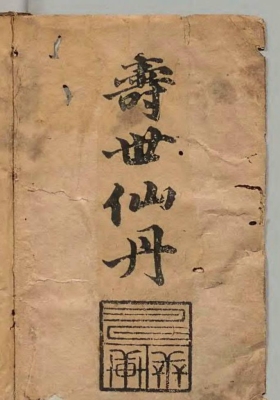 壽世仙丹